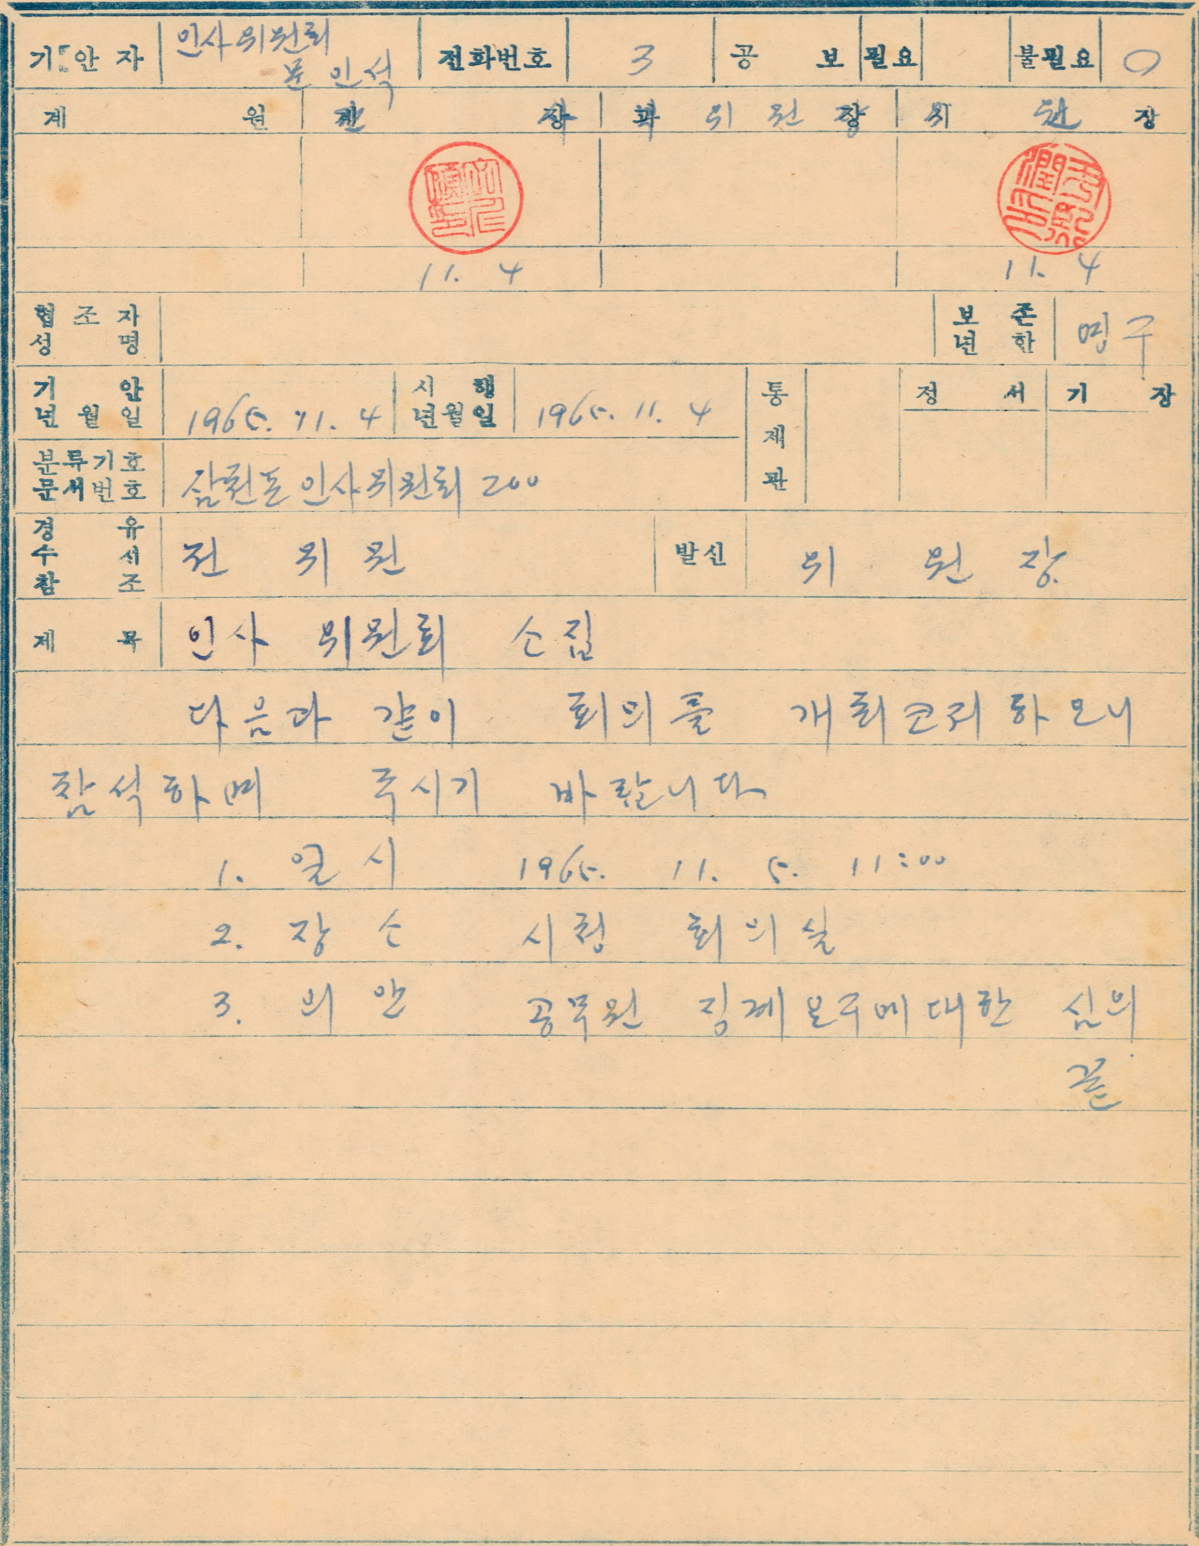 기안자 인사위원회 전화번호 3 공보 필요 불필요 ○
문인석
계 원 장 위원장 위원장
11. 4 11. 4
협조자 보존
성명 년한 영구
기안 시행 통 정서 기장
년월일 1965. 11. 4 년월일 1965. 11. 4 제
분류기호
문서번호 삼천포인사위원회 200 관
경유
수서 전위원 발신 위원장
참조
제목 인사위원회 소집
다음과 같이 회의를 개회코저 하오니
참석하여 주시기 바랍니다
1. 일시 1965. 11. 5. 11:00
2. 장소 시청 회의실
3. 의안 공무원 징계요구에 대한 심의
끝